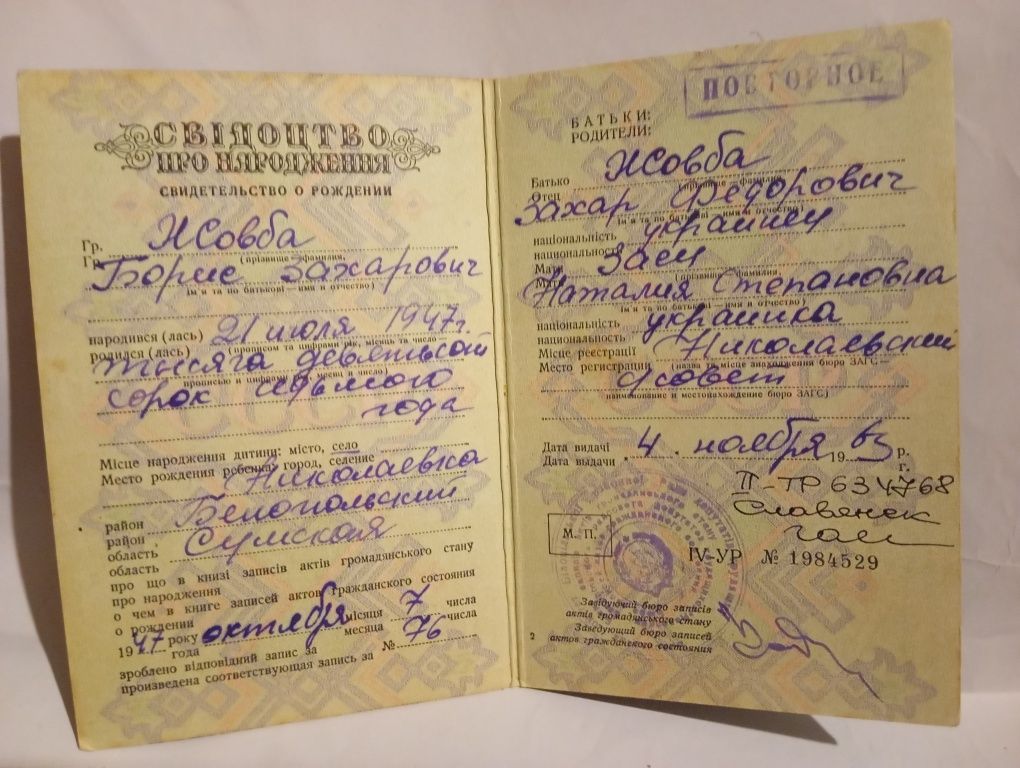 СВІДОЦТВО
ПРО НАРОДЖЕННЯ
СВИДЕТЕЛЬСТВО О РОЖДЕНИИ
Гр. Жовба
Гр.
(прізвище — фамилия)
Борис Захарович
(ім'я та по батькові — имя и отчество)
народився (лась) 21 июля 1947 г.
родился (лась)
(прописом та цифрами рік, місяць та число —
тысяча девятьсот
прописью и цифрами год, месяц и число)
сорок седьмого
года
Місце народження дитини: місто, село
Место рождения ребенка: город, селение
Николаевка
район Белопольский
район
область Сумская
область
про що в книзі записів актів громадянського стану
про народження
о чем в книге записей актов гражданского состояния
о рождении
1947 року октября місяця 7 числа
года месяца числа
зроблено відповідний запис за № 76
произведена соответствующая запись за
ПОВТОРНОЕ
БАТЬКИ:
РОДИТЕЛИ:
Батько Жовба
Отец
(прізвище — фамилия)
Захар Федорович
(ім'я та по батькові — имя и отчество)
національність украинец
национальность
Мати Заец
Мать
(прізвище — фамилия)
Наталия Степановна
(ім'я та по батькові — имя и отчество)
національність украинка
национальность
Місце реєстрації Николаевский
Место регистрации
(назва та місце знаходження бюро ЗАГС —
с/совет
наименование и местонахождение бюро ЗАГС)
Дата видачі 4 ноября 1963 р.
Дата выдачи г.
II-ТР 634768
М. П.
IV-УР № 1984529
Завідуючий бюро записів
актів громадянського стану
Заведующий бюро записей
актов гражданского состояния
2